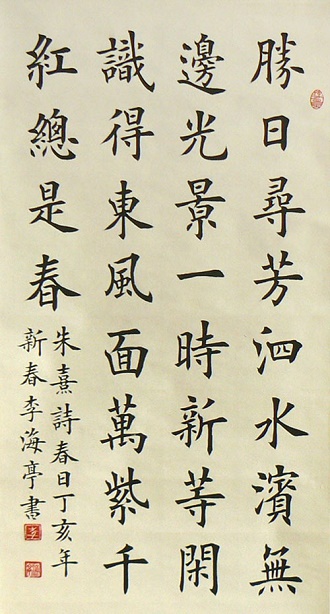 勝日尋芳泗水濱無
邊光景一時新等閑
識得東風面萬紫千
紅總是春
朱熹詩春日丁亥年
新春李海亭書